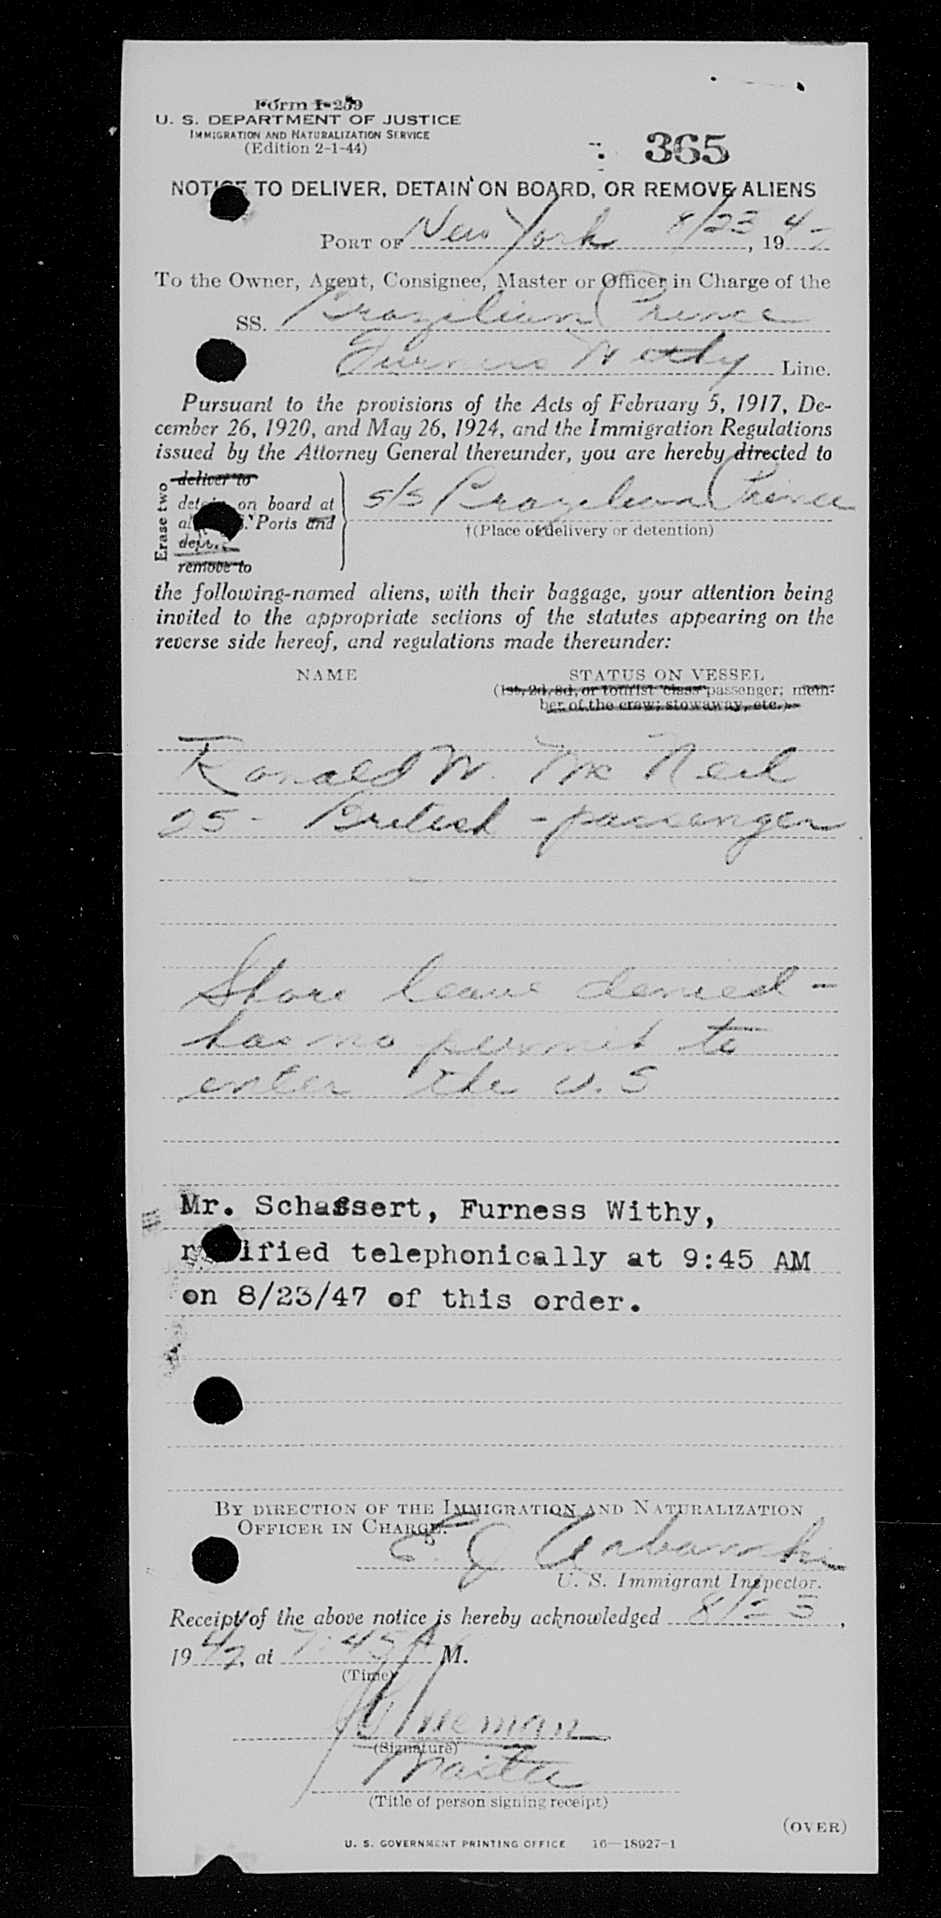 Form I-259
U. S. DEPARTMENT OF JUSTICE
IMMIGRATION AND NATURALIZATION SERVICE
(Edition 2-1-44)
365
NOTICE TO DELIVER, DETAIN ON BOARD, OR REMOVE ALIENS
PORT OF New York 8/23, 1947
To the Owner, Agent, Consignee, Master or Officer in Charge of the
SS. Brazilian Prince
Furness Withy Line.
Pursuant to the provisions of the Acts of February 5, 1917, De-
cember 26, 1920, and May 26, 1924, and the Immigration Regulations
issued by the Attorney General thereunder, you are hereby directed to
Erase two
deliver to
detain on board at
al U.S. Ports and
deport
remove to
s/s Brazilian Prince
†(Place of delivery or detention)
the following-named aliens, with their baggage, your attention being
invited to the appropriate sections of the statutes appearing on the
reverse side hereof, and regulations made thereunder:
NAME STATUS ON VESSEL
(1st, 2d, 3d, or tourist class passenger; mem-
ber of the crew; stowaway, etc.)
Ronald W. McNeil
25 - British - passenger
Shore leave denied -
has no permit to
enter the U.S
Mr. Schassert, Furness Withy,
notified telephonically at 9:45 AM
on 8/23/47 of this order.
BY DIRECTION OF THE IMMIGRATION AND NATURALIZATION
OFFICER IN CHARGE:
E. J. Urbanski
U. S. Immigrant Inspector.
Receipt of the above notice is hereby acknowledged 8/23,
1947, at 7:45 A M.
(Time)
(Signature)
Master
(Title of person signing receipt)
(OVER)
U. S. GOVERNMENT PRINTING OFFICE 16—18927-1